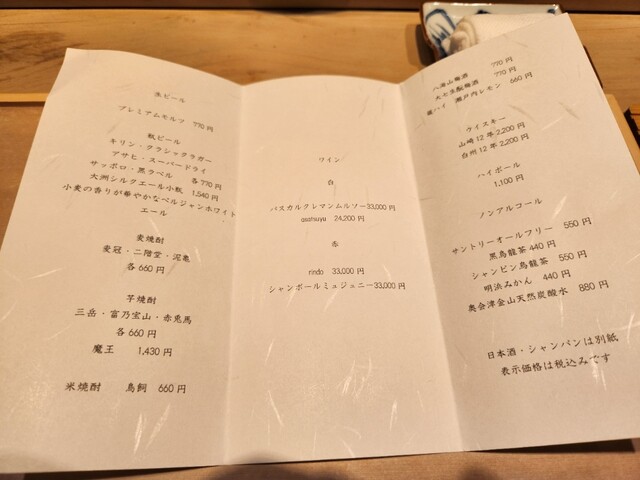 生ビール
プレミアムモルフ 770円
瓶ビール
キリン・クラシックラガー
アサヒ・スーパードライ
サッポロ・黒ラベル 各770円
大洲シルクエール小瓶 1,540円
小麦の香りが華やかなベルジャンホワイト
エール
麦焼酎
麦冠・二階堂・泥亀
各660円
芋焼酎
三岳・富乃宝山・赤兎馬
各660円
魔王 1,430円
米焼酎 鳥飼 660円
ワイン
白
パスカルクレマンムルソー33,000円
asatsuyu 24,200円
赤
rindo 33,000円
シャンボールミュジュニー33,000円
八海山梅酒 770円
大七生酛梅酒 770円
酎ハイ 瀬戸内レモン 660円
ウイスキー
山崎12年2,200円
白州12年2,200円
ハイボール
1,100円
ノンアルコール
サントリーオールフリー 550円
黒烏龍茶440円
シャンピン烏龍茶 550円
明浜みかん 440円
奥会津金山天然炭酸水 880円
日本酒・シャンパンは別紙
表示価格は税込みです